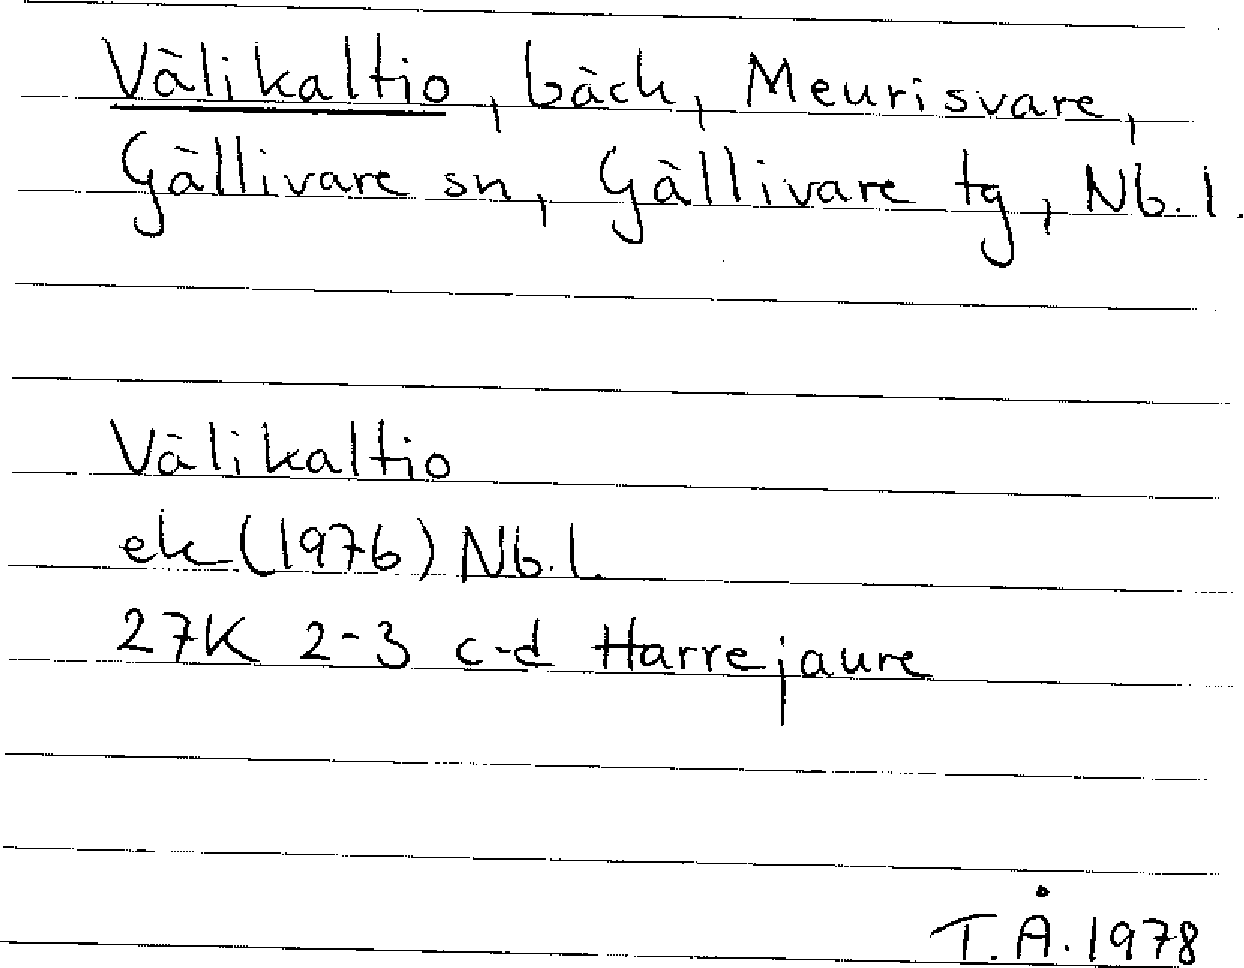 Välikaltio, bäck, Meurisvare,
Gällivare sn, Gällivare tg, Nb. l.
Välikaltio
ek (1976) Nb. l.
27K 2-3 c-d Harrejaure
T.Å. 1978